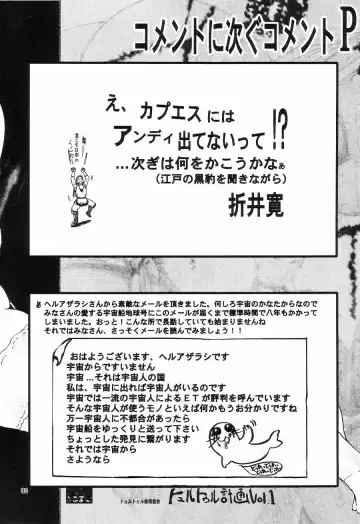 コメントに次ぐコメントP
え、カプエスには
アンディ出てないって!?
…次ぎは何をかこうかなぁ
(江戸の黒豹を聞きながら)
折井寛
ヘルアザラシさんから素敵なメールを頂きました。何しろ宇宙のかなたからなので
みなさんの愛する宇宙船地球号にこのメールが届くまで標準時間で八年もかかって
しまいました。おっと!こんな所で長話していても始まりませんね
それではみなさん、さっそくメールを読んでみましょう!!
おはようございます、ヘルアザラシです
宇宙からですいません
宇宙…それは宇宙人の国
私は、宇宙に出れば宇宙人がいるのです
宇宙では一流の宇宙人によるETが評判を呼んでいます
そんな宇宙人が使うモノといえば何かもうお分かりですね
万一宇宙人に不都合があったら
宇宙船をゆっくりと送って下さい
ちょっとした発見に繋がります
それでは宇宙から
さようなら
トゥルトゥル計画Vol.1